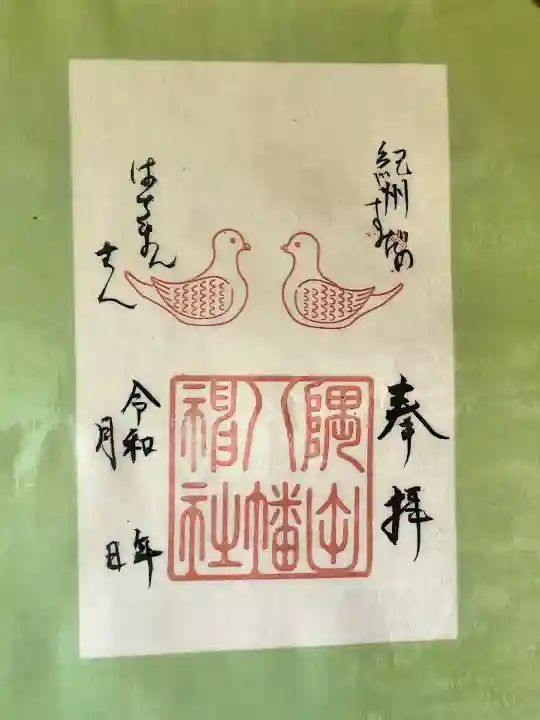 紀州すだの
奉拝
隅田
八幡
神社
はちまん
さん
令和 年
月 日